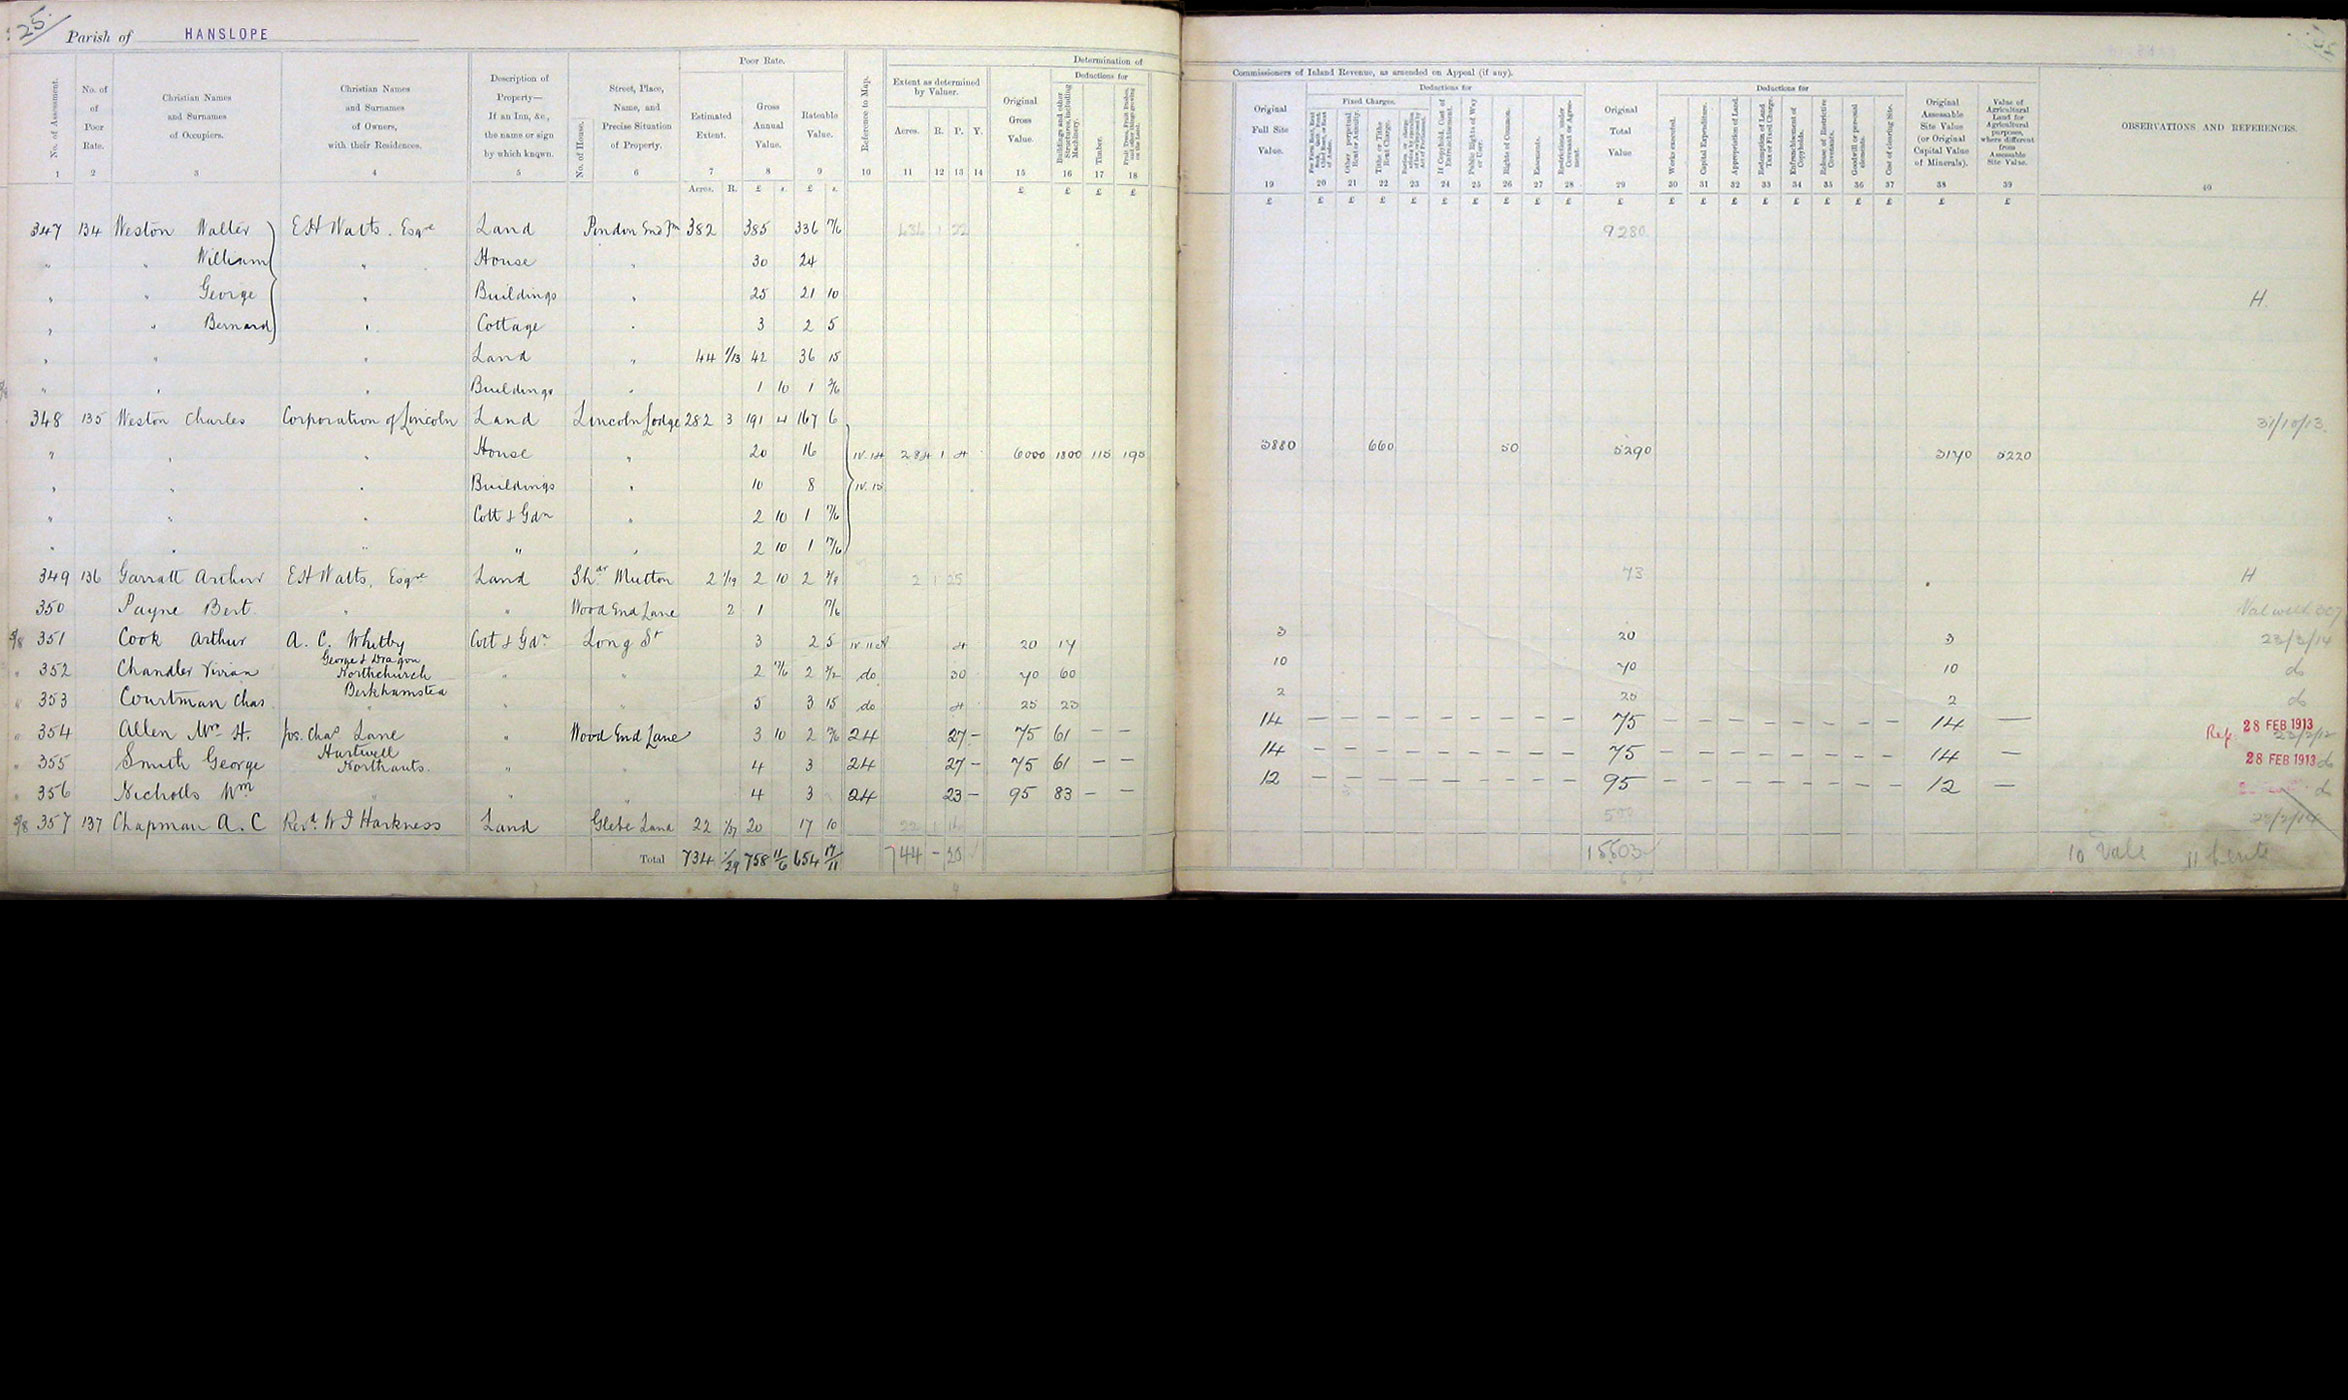 25.
Parish of HANSLOPE
Poor Rate.
Determination of
Commissioners of Inland Revenue, as amended on Appeal (if any).
No. of Assessment. No. of Poor Rate. Christian Names and Surnames of Occupiers. Christian Names and Surnames of Owners, with their Residences. Description of Property— If an Inn, &c., the name or sign by which known. No. of House. Street, Place, Name, and Precise Situation of Property. Estimated Extent. Gross Annual Value. Rateable Value. Reference to Map. Extent as determined by Valuer. Acres. R. P. Y. Original Gross Value. Deductions for Buildings and other Structures, including Machinery. Timber. Fruit Trees, Fruit Bushes, and other things growing on the Land.
Original Full Site Value. Deductions for Fixed Charges. Other perpetual Rent or Annuity. Tithe or Tithe Rent Charge. If Copyhold, Cost of Enfranchisement. Public Rights of Way or User. Rights of Common. Easements. Restrictions under Covenant or Agreement. Original Total Value. Deductions for Works executed. Capital Expenditure. Appropriation of Land. Redemption of Land Tax or Fixed Charge. Enfranchisement of Copyholds. Release of Restrictive Covenants. Goodwill or personal elements. Cost of clearing Site. Original Assessable Site Value (or Original Capital Value of Minerals). Value of Agricultural Land for Agricultural purposes, where different from Assessable Site Value. OBSERVATIONS AND REFERENCES.
1 2 3 4 5 6 7 8 9 10 11 12 13 14 15 16 17 18
19 20 21 22 23 24 25 26 27 28 29 30 31 32 33 34 35 36 37 38 39 40
Acres. R. £ s. £ s. £ £ £ £
£ £ £ £ £ £ £ £ £ £ £ £ £ £ £ £ £ £ £ £ £
347 134 Weston Walter E H Watts. Esqre Land 382 385 336 7/6 9280
" " William " House " 30 24
" " George " Buildings " 25 21 10 H
" " Bernard " Cottage " 3 2 5
" " " Land " 44 1/13 42 36 15
" " " Buildings " 1 10 1
348 135 Weston Charles Corporation of Lincoln Land Lincoln Lodge 282 3 191 4 167 6 31/10/13.
" " " House " 20 16 IV.14 284 1 4 6000 1800 115 195 3880 660 50 5290 3170 5220
" " " Buildings " 10 8 IV.15
" " " Cott & Gdn " 2 10 1 17/6
" " " " " 2 10 1 17/6
349 136 Garratt Arthur E H Watts, Esqre Land Shdr Mutton 2 1/19 2 10 2 2 1 25 73 H
350 Payne Bert. " " Wood End Lane 2 1 7/6
5/8 351 Cook Arthur A. C. Whitby Cott & Gdn Long St 3 2 5 4 20 17 3 20 3 23/3/14
George & Dragon
" 352 Chandler Vivian Northchurch " " 2 2 do 30 70 60 10 70 10 do
Berkhamstead
" 353 Courtman Chas. " " 5 3 15 do 4 25 23 2 25 2 do
" 354 Allen Mrs H. Jos. Chas Lane " Wood End Lane 3 10 2 24 27 - 75 61 - - 14 75 14 — Rep. 28 FEB 1913
Hartwell
" 355 Smith George Northants. " " 4 3 24 27 - 75 61 - - 14 75 14 — 28 FEB 1913 do
" 356 Nicholls Wm " " " 4 3 24 23 - 95 83 - - 12 95 12 — do
5/8 357 137 Chapman A. C Revd. W J Harkness Land Glebe Land 22 1/37 20 17 10 22 1
Total 734 758 11/6 654 17/11 744 - 20 15503
10 Vals